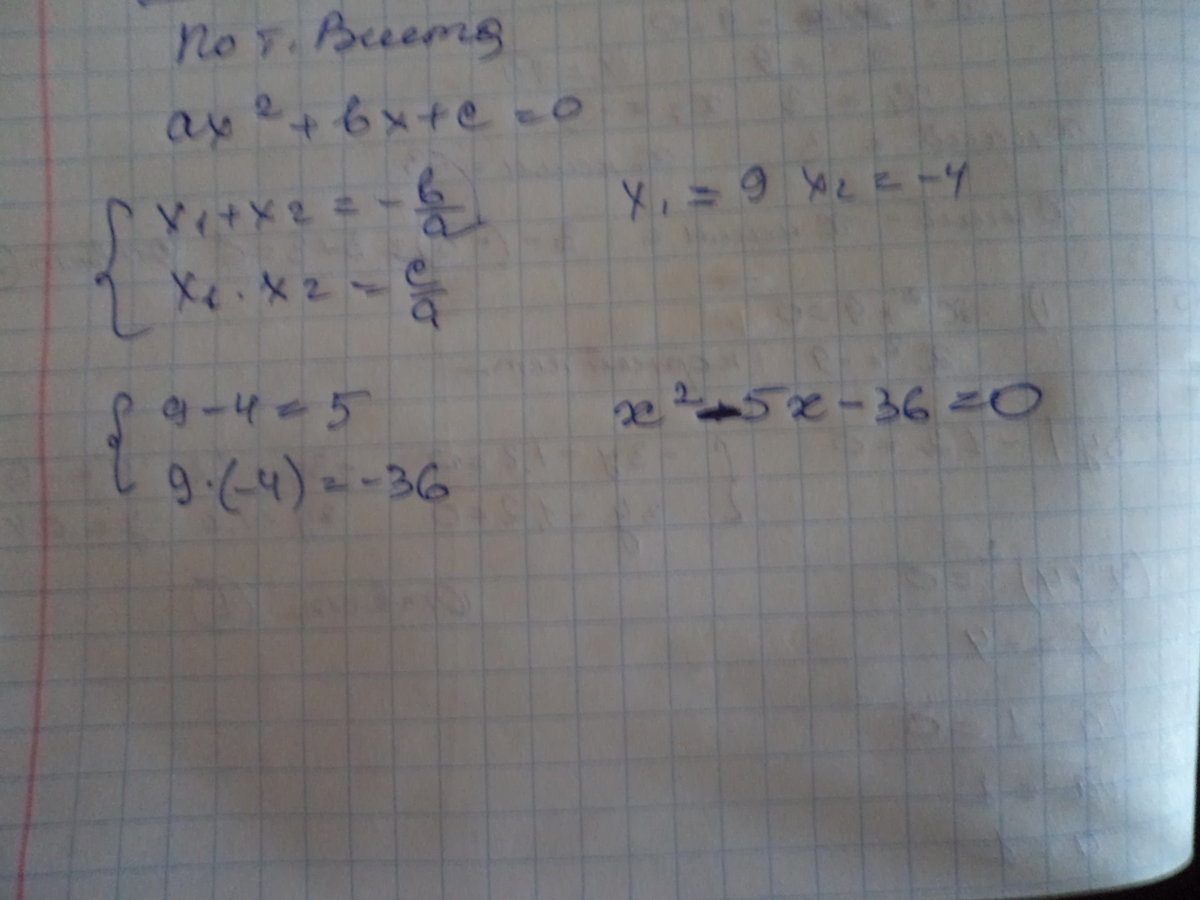 По т. Виета
ax² + bx + c = 0
{ x₁ + x₂ = - b/a
x₁ · x₂ = c/a
x₁ = 9 x₂ = -4
{ 9 - 4 = 5
9 · (-4) = -36
x² - 5x - 36 = 0